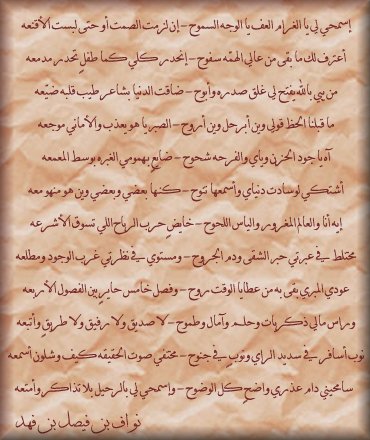 إسمحي لي يا الغرام العف يا الوجه السموح – إن لزمت الصمت أو حتى لبست الأقنعه
أعترف لك ما بقى من عالي الهقه سفوح – إنحدر كلي كما طفلٍ تحدر مدمعه
من يبي بالله يفتح لي غلق صدره وأبوح – ضاقت الدنيا بشاعر طيب قلبه ضيّعه
ما قبلنا الحظ قولي وين أبرحل وين أروح – الصبر يا هو بعذب والأماني موجعه
آه يا جود الحزن وياي والفرحه شحوح – ضايعٍ بهمومي الغبره بوسط المعمعه
أشتكي لوسادت دنياي وأسمعها تنوح – كنها بعضي وبعضي وين هو منهو معه
إيه أنا والعالم المغرور والياس اللحوح – خايضٍ حرب الرياح اللي تسوق الأشرعه
مختلط في عبرتي حبر الشقى ودم الجروح – ومستوي في نظرتي غرب الوجود ومطلعه
عودي المبري بقى به من عطايا الوقت روح – وفصل خامس حايرٍ بين الفصول الأربعه
وراس مالي ذكريات وحلم وآمال وطموح – لا صديق ولا رفيق ولا طريقٍ وأتبعه
نوب أسافر في سديد الراي ونوبٍ في جنوح – مختفي صوت الحقيقه كيف وشلون أسمعه
سامحيني دام عذري واضحٍ كل الوضوح – وإسمحي لي بالرحيل بلا تذاكر وأمتعه
نواف بن فيصل بن فهد